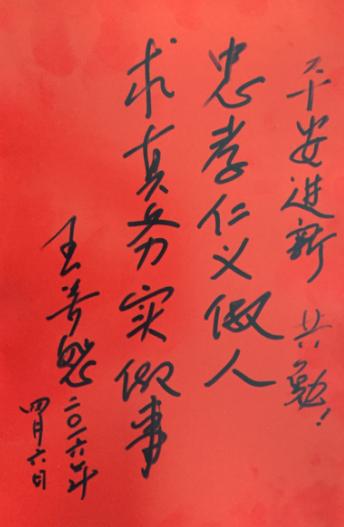 平安进新 共勉！
忠孝仁义做人
求真务实做事
王芳
二〇一六年
四月六日